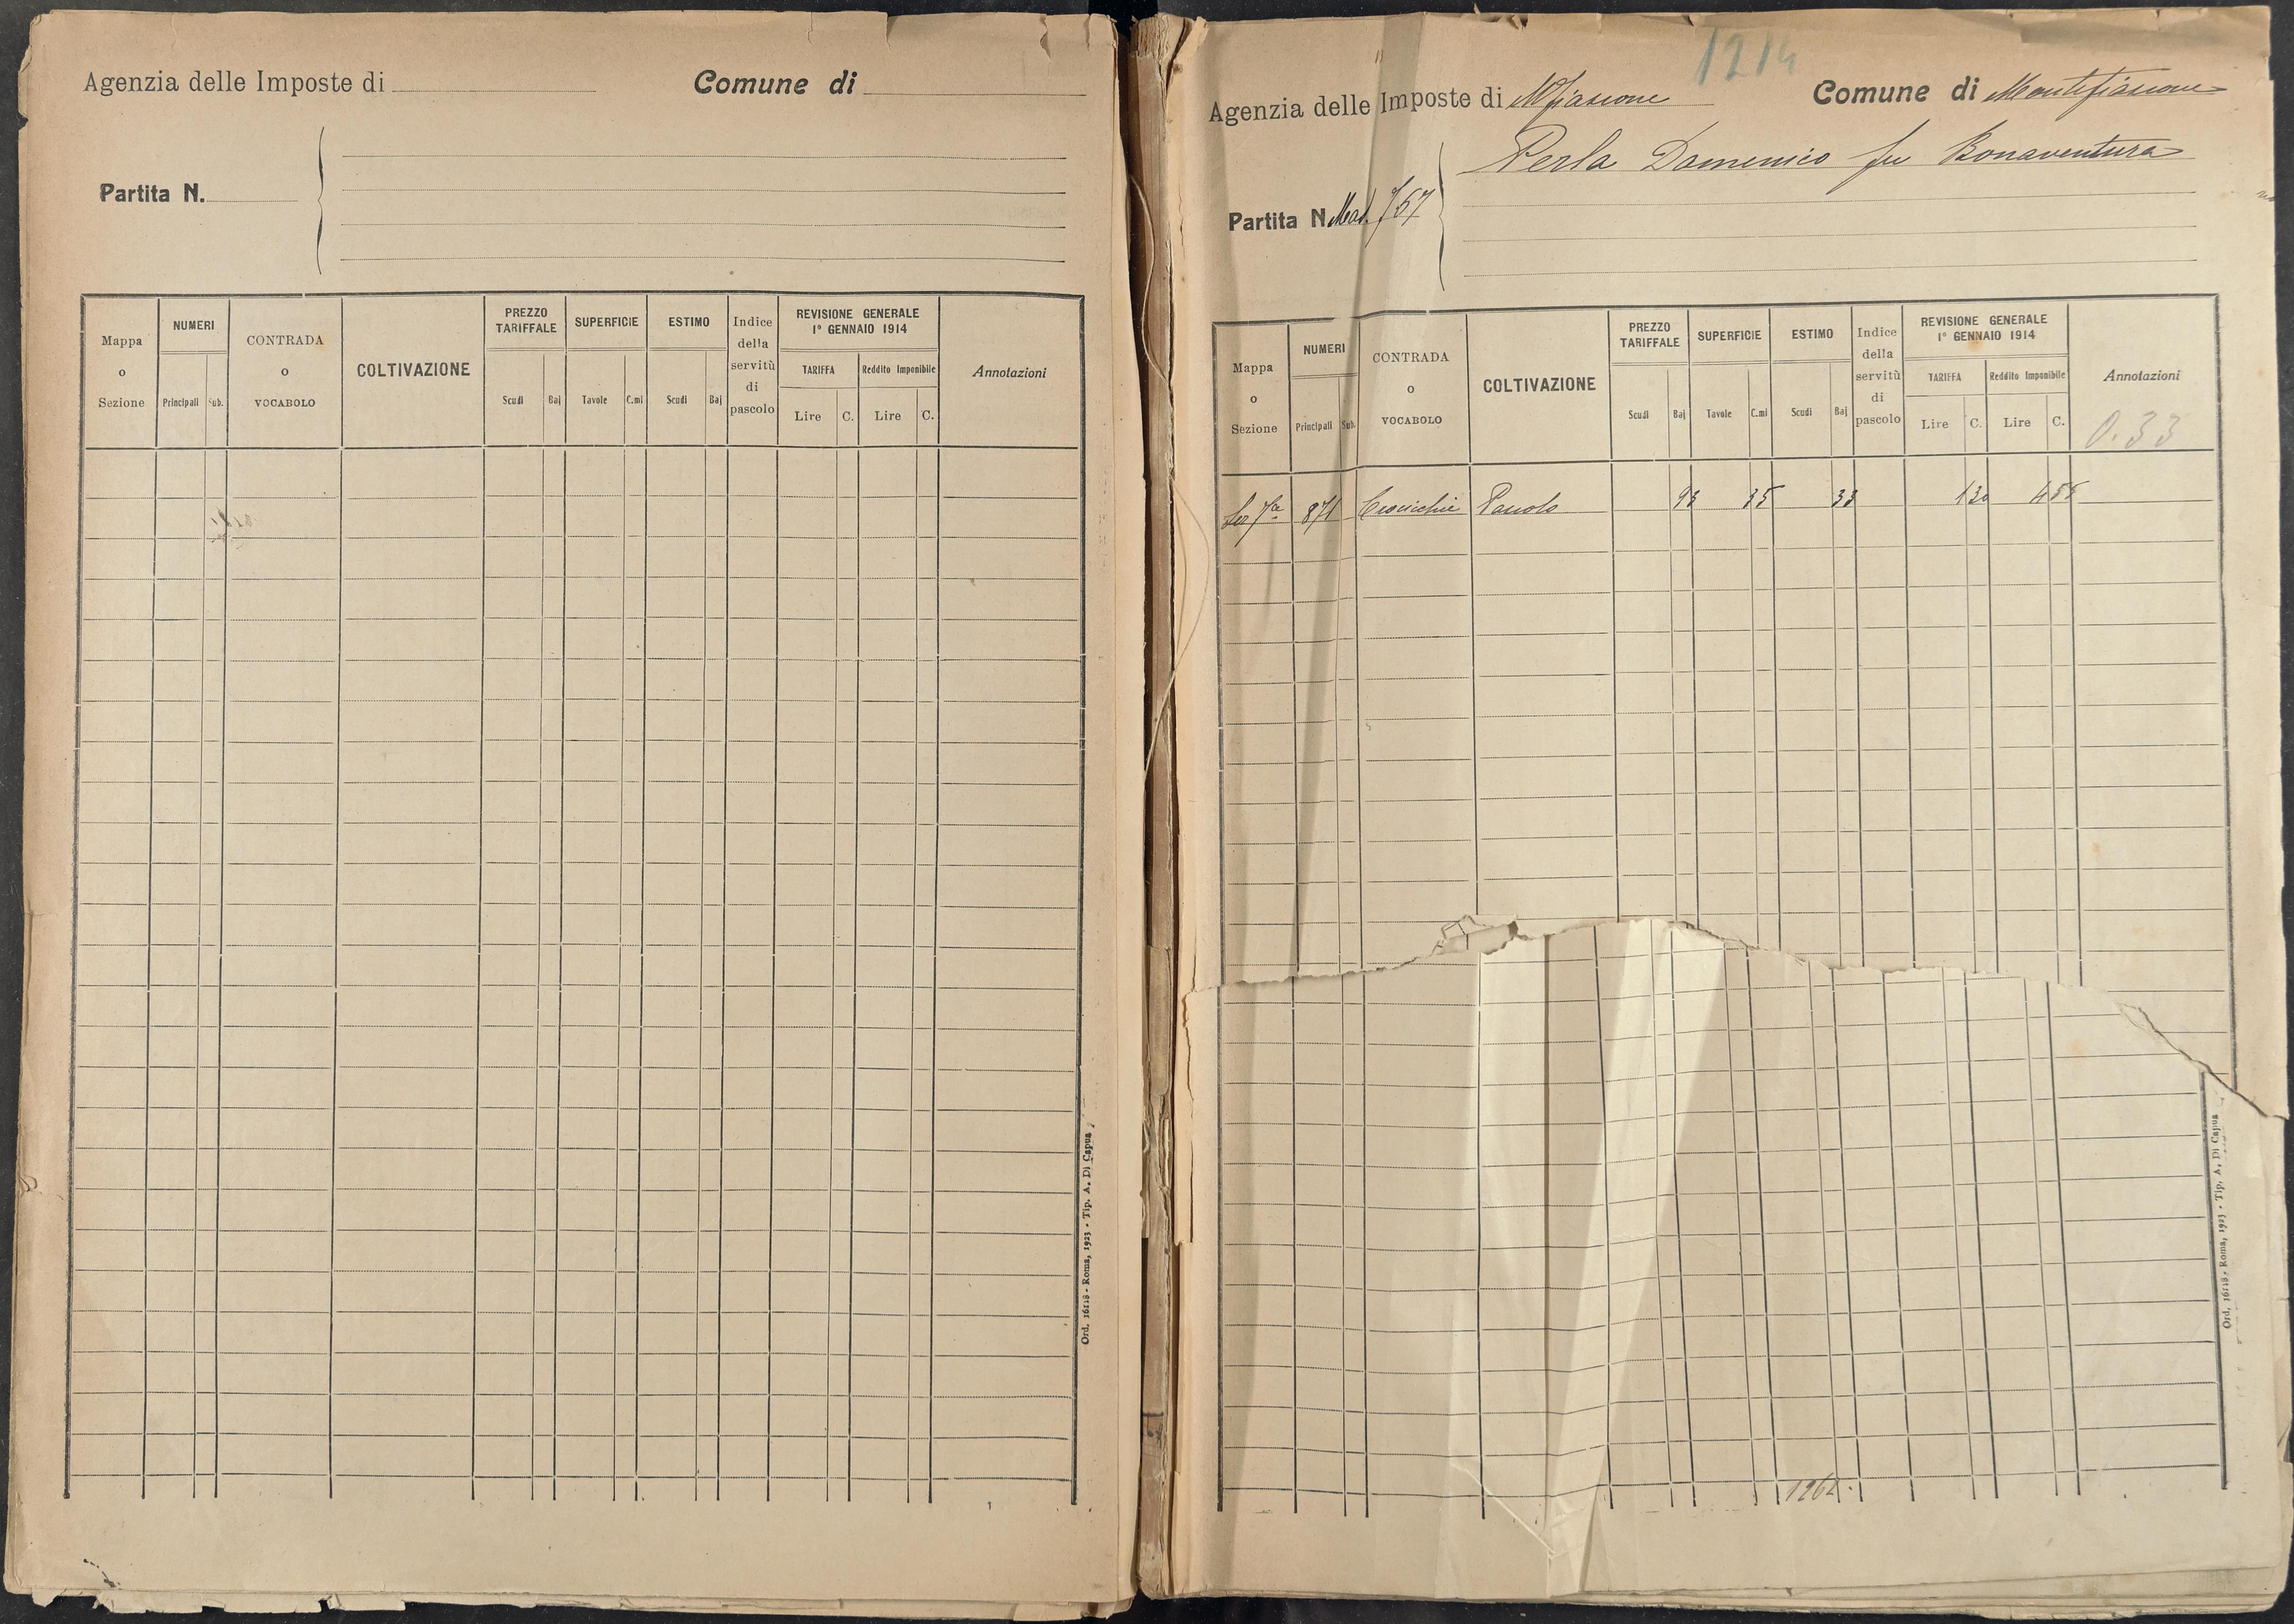 Agenzia delle Imposte di
Comune di
Partita N.
Mappa o Sezione
NUMERI
Principali
Sub.
CONTRADA o VOCABOLO
COLTIVAZIONE
PREZZO TARIFFALE
Scudi
Baj
SUPERFICIE
Tavole
C.mi
ESTIMO
Scudi
Baj
Indice della servitù di pascolo
REVISIONE GENERALE 1° GENNAIO 1914
TARIFFA
Lire
C.
Reddito Imponibile
Lire
C.
Annotazioni
Ord. 16118 - Roma, 1923 - Tip. A. Di Capua
1214
Agenzia delle Imposte di Mfiascone
Comune di Montefiascone
Perla Domenico fu Bonaventura
Partita N.
Mappa o Sezione
NUMERI
Principali
Sub.
CONTRADA o VOCABOLO
COLTIVAZIONE
PREZZO TARIFFALE
Scudi
Baj
SUPERFICIE
Tavole
C.mi
ESTIMO
Scudi
Baj
Indice della servitù di pascolo
REVISIONE GENERALE 1° GENNAIO 1914
TARIFFA
Lire
C.
Reddito Imponibile
Lire
C.
Annotazioni
0.33
Sez 7a 871 Crocicchie Pascolo 93 35 33 130
1262.
Ord. 16118 - Roma, 1923 - Tip. A. Di Capua